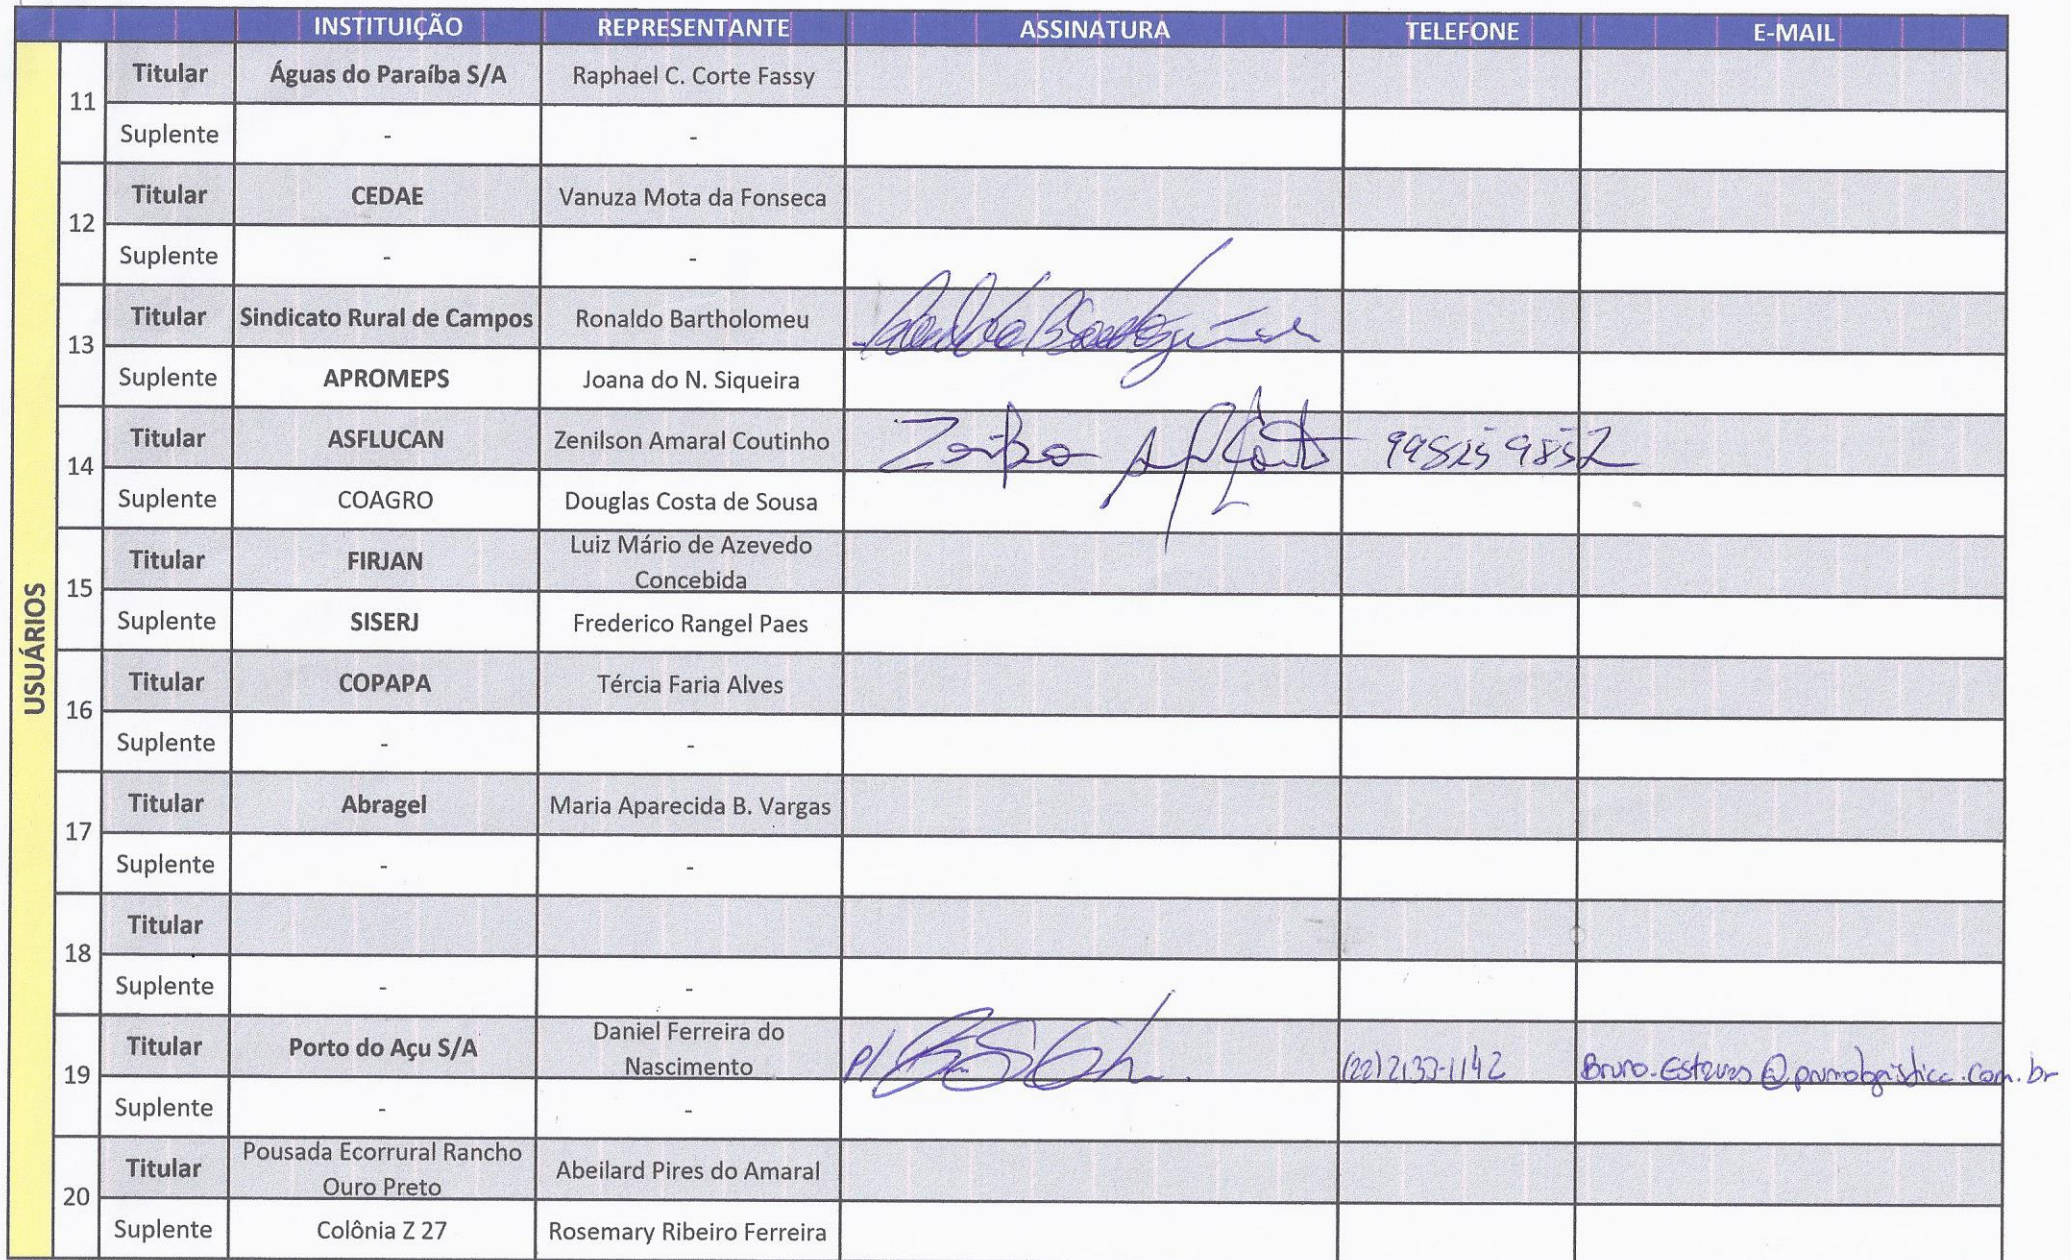 INSTITUIÇÃO REPRESENTANTE ASSINATURA TELEFONE E-MAIL
USUÁRIOS
11
Titular Águas do Paraíba S/A Raphael C. Corte Fassy
Suplente - -
12
Titular CEDAE Vanuza Mota da Fonseca
Suplente - -
13
Titular Sindicato Rural de Campos Ronaldo Bartholomeu
Suplente APROMEPS Joana do N. Siqueira
14
Titular ASFLUCAN Zenilson Amaral Coutinho 998259852
Suplente COAGRO Douglas Costa de Sousa
15
Titular FIRJAN Luiz Mário de Azevedo
Concebida
Suplente SISERJ Frederico Rangel Paes
16
Titular COPAPA Tércia Faria Alves
Suplente - -
17
Titular Abragel Maria Aparecida B. Vargas
Suplente - -
18
Titular
Suplente - -
19
Titular Porto do Açu S/A Daniel Ferreira do
Nascimento p/ (22)2133-1142 Bruno.Esteves@prumologistica.com.br
Suplente - -
20
Titular Pousada Ecorrural Rancho
Ouro Preto Abeilard Pires do Amaral
Suplente Colônia Z 27 Rosemary Ribeiro Ferreira